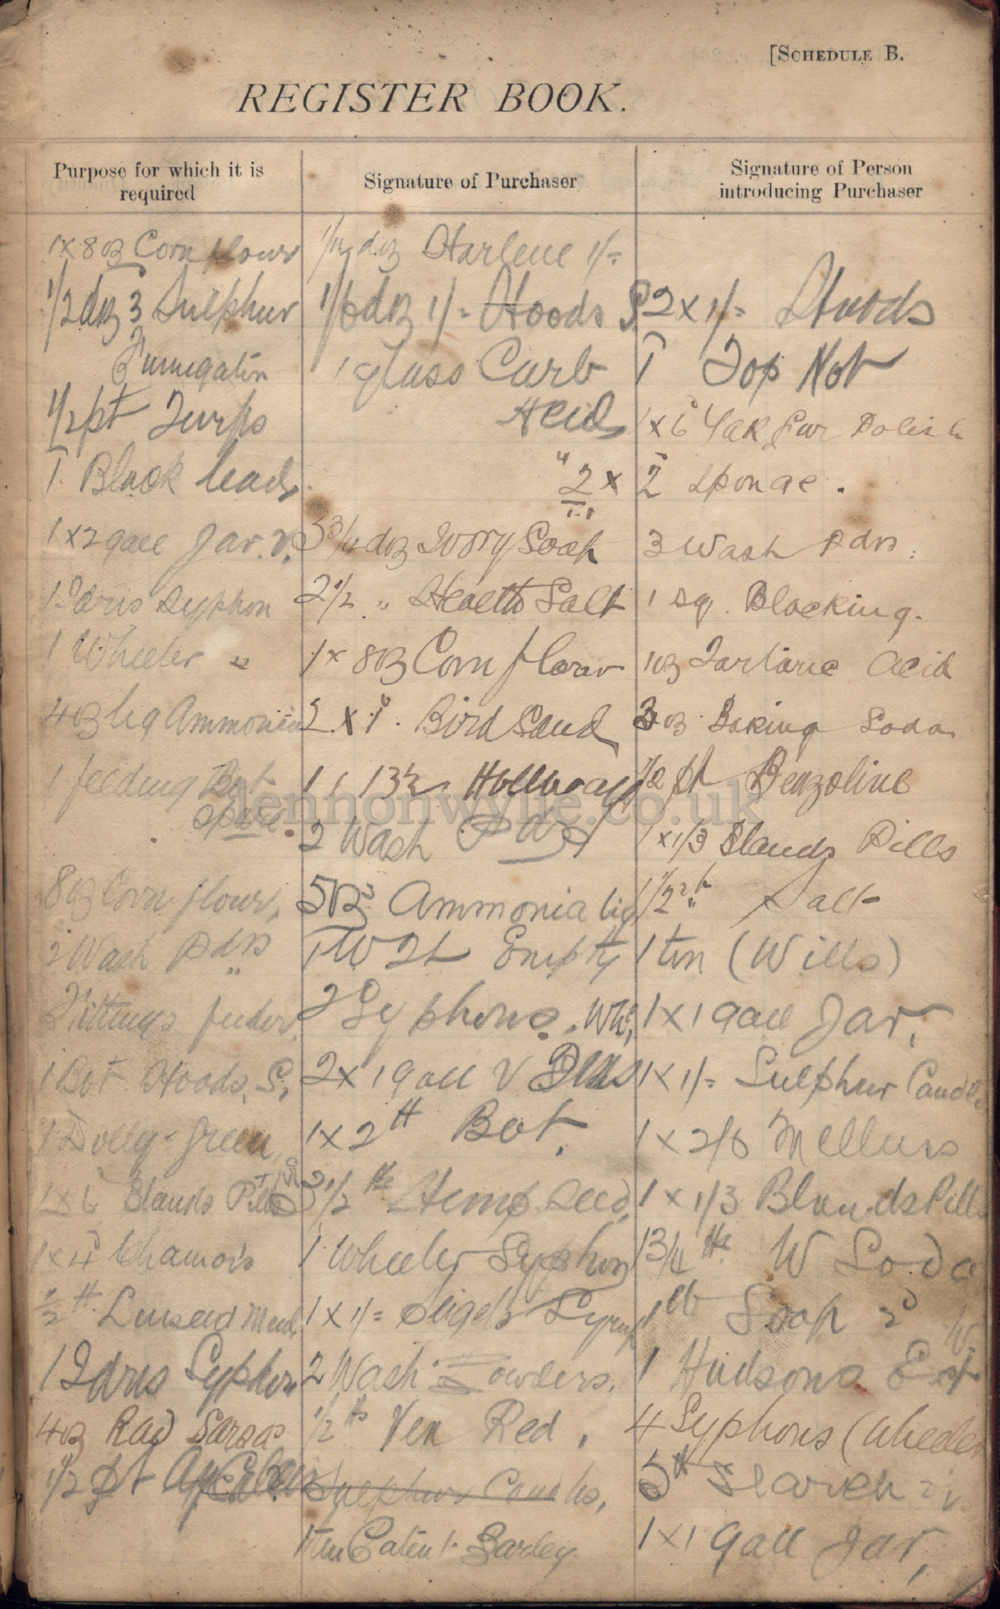 [SCHEDULE B.
REGISTER BOOK.
Purpose for which it is
required
1x8oz Corn flour
1/2 doz 3 Sulphur
Fumigatin
1/2 pt Turps
1 Black lead
1x2 gall Jar. V.
1 Idris Syphon
1 Wheeler "
4 oz liq Ammonia
1 feeding Bot
8oz Corn flour,
2 Wash Pdrs
feeder
1 Bot Hoods. S.
1 Dolly Green
1x6 Blauds Pills
1x4 Chamois
1/2 lt Linseed Meal
1 Idris Syphon
4oz Rad Sarsae
1/2 pt
Signature of Purchaser
1/12 doz Harlene 1/=
1/6 doz 1/= Hoods S
1 glass Carb
Acid
" 2 x
3/4 doz Ivory Soap
2 1/2 " Health Salt
1x 8oz Corn flour
2 x 1. Bird Sand
1 13½
2 Wash
5oz Ammonia liq
1 W Empty
2 Syphons. Wh.
2x 1 gall V
1x2 lt Bot.
3 1/2 lb Hemp Seed
1 Wheeler Syphon
1x1/= Seigels Syrup
2 Wash Powders.
1/2 lb Ven Red.
Sulphur Candles,
1 tin Patent Barley
Signature of Person
introducing Purchaser
2x1/= Hoods
1 Top Not
1x6 Yak Fur Polish
2 Sponge.
3 Wash Pdrs.
1 sq. Blacking.
1oz Tartaric Acid
3oz Baking Soda
1/2 pt Benzoline
1x1/3 Blauds Pills
Salt
1 tin (Wills)
1x1 gall Jar,
1x1/= Sulphur Candle
1x2/6 Mellins
1x1/3 Blauds Pills
1 3/4 lb W Soda
1 lb Soap 2d
1 Hudsons Ext
4 Syphons (Wheeler
5 lt Starch
1x1 gall Jar,
lennonwylie.co.uk